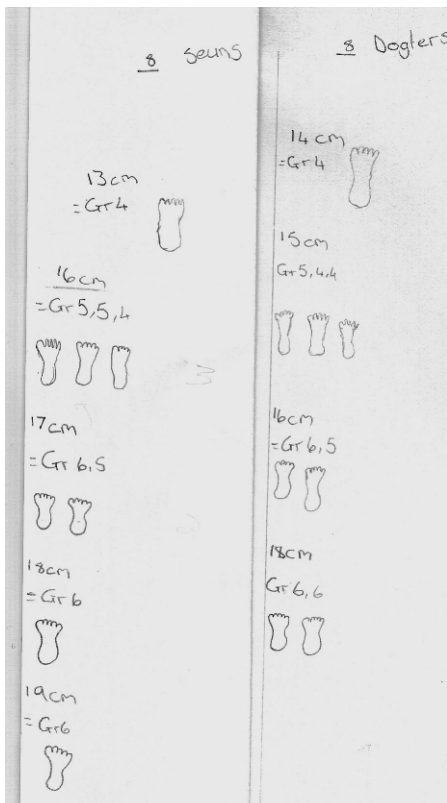 8 Seuns
13cm
=Gr4
16cm
=Gr5,5,4
17cm
=Gr6,5
18cm
=Gr6
19cm
=Gr6
8 Dogters
14cm
=Gr4
15cm
Gr5,4,4
16cm
=Gr6,5
18cm
Gr6,6